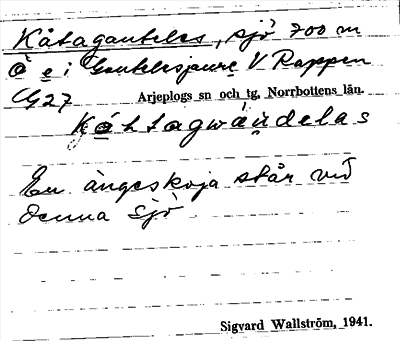 Kåtagautelas, sjö 700 m
Ö e i Gautelisjaure V Rappen
Arjeplogs sn och tg, Norrbottens län.
En ängeskoja står vid
denna sjö
Sigvard Wallström, 1941.